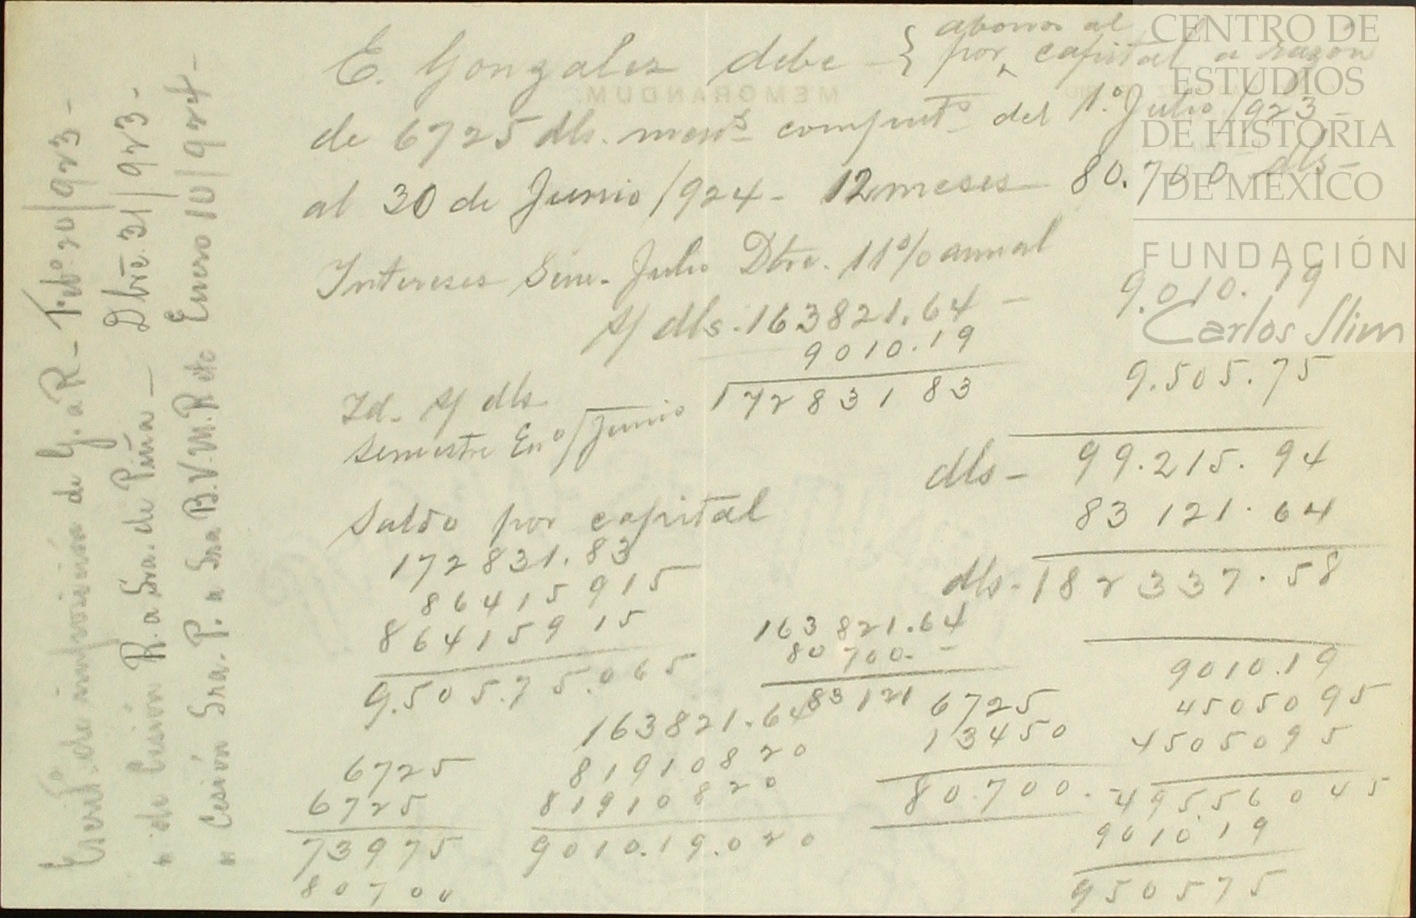 E. Gonzalez debe - { abonos al
por capital a razón
de 6725 dls. mens. comput.º del 1.º Julio/923 -
al 30 de Junio/924 - 12 meses 80.700 dls -
Intereses Sem. Julio Dbre. 11% anual
s/ dls. 163821.64 - 9.010.19
9010.19
Id. s/ dls 172831 83 9.505.75
Semestre En.º/Junio
dls - 99.215.94
83 121.64
Saldo por capital
dls - 182337.58
172831.83
86415915
86415915
9.505.75.065
163821.64
80700. -
83121
9010.19
4505095
4505095
49556045
9010.19
950575
163821.64
81910820
81910820
9010.19.020
6725
13450
80.700.
6725
6725
73975
80700
Escrit. de imposición de G. a R - Feb.º 20/923 -
" de Cesión R. a Sra. de Piña - Dbre. 31/923 -
" Cesión Sra. P. a Sra B.V.M.R etc Enero 10/924 -
MEMORANDUM.
CENTRO DE
ESTUDIOS
DE HISTORIA
DE MÉXICO
FUNDACIÓN
Carlos Slim